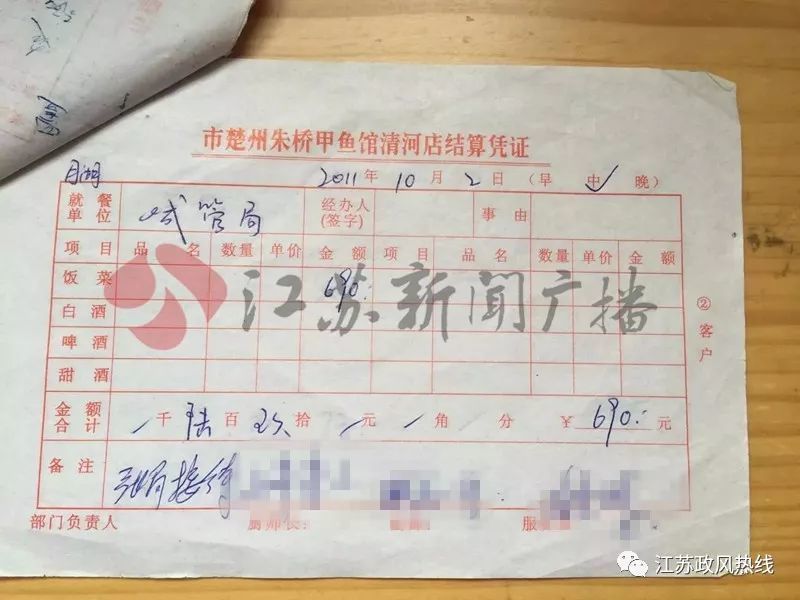 市楚州朱桥甲鱼馆清河店结算凭证
月湖 2011年10月2日(早 中√ 晚)
就餐单位 城管局 经办人(签字) 事由
项目 品名 数量 单价 金额 项目 品名 数量 单价 金额
饭菜 690.
白酒
啤酒
甜酒
金额合计 千陆百玖拾元角分 ¥690.元
备注
部门负责人 厨师长: 服
②客户
江苏新闻广播
江苏政风热线